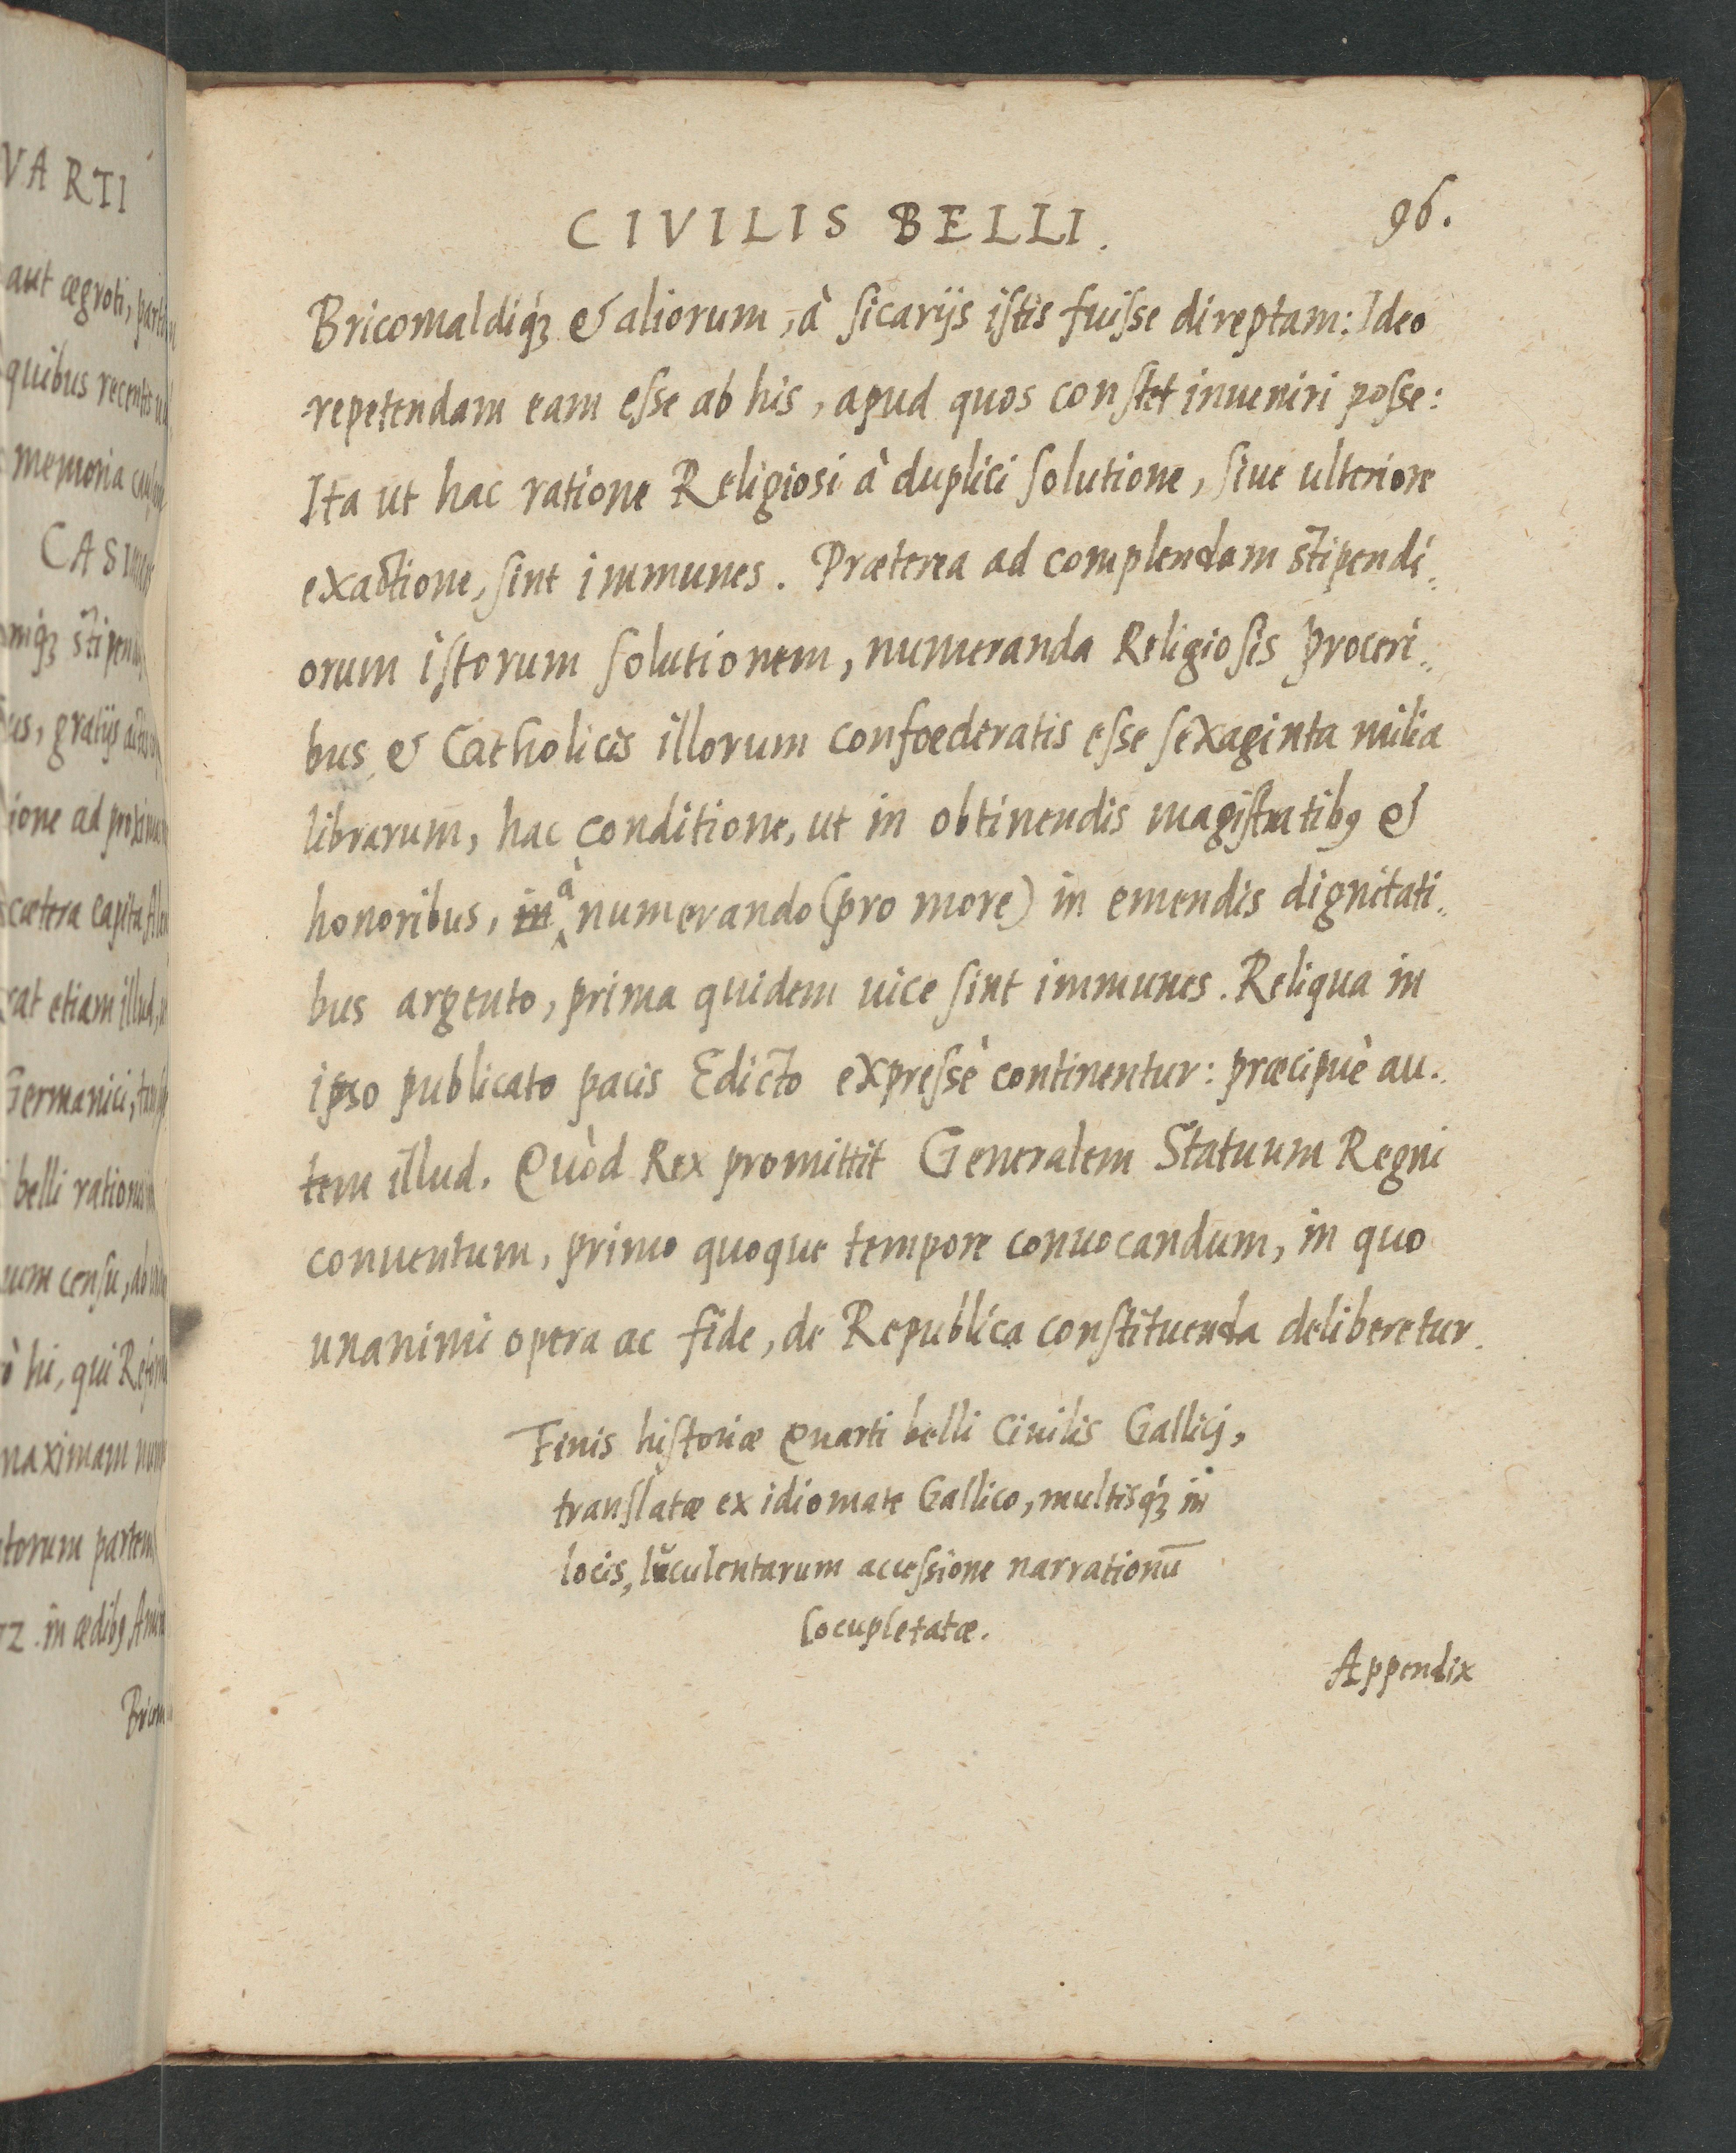 VARTI
aut ægroti,
quibus
memoria
gratijs
ione ad
cætera capita
rat etiam illud,
Germanici,
belli
um censu,
hi, qui
maximam
torum partem
in ædibꝰ
CIVILIS BELLI. 96.
Bricomaldiq́ꝫ & aliorum, à ſicarijs iſtis fuiſse direptam: Ideo
repetendam eam eſse ab his, apud quos conſtet inueniri poſse:
Ita ut hac ratione Religiosi à duplici ſolutione, ſiue ulteriore
exactione, ſint immunes. Præterea ad complendam stipendi„
orum iſtorum ſolutionem, numeranda Religioſis Proceri„
bus & Catholicis illorum confœderatis eſse ſexaginta milia
librarum, hac conditione, ut in obtinendis magiſtratibꝰ &
honoribus, in à numerando (pro more) in emendis dignitati„
bus argento, prima quidem uice ſint immunes. Reliqua in
ipso publicato pacis Edicto expreſsè continentur: præcipuè au„
tem illud. Quòd Rex promittit Generalem Statuum Regni
conuentum, primo quoque tempore conuocandum, in quo
unanimi opera ac fide, de Republica conſtituenda deliberetur.
Finis hiſtoriæ Quarti belli Ciuilis Gallicj,
tranſlatæ ex idiomate Gallico, multisq́ꝫ in
locis, lŭculentarum acceſsione narrationū
locupletatæ.
Appendix